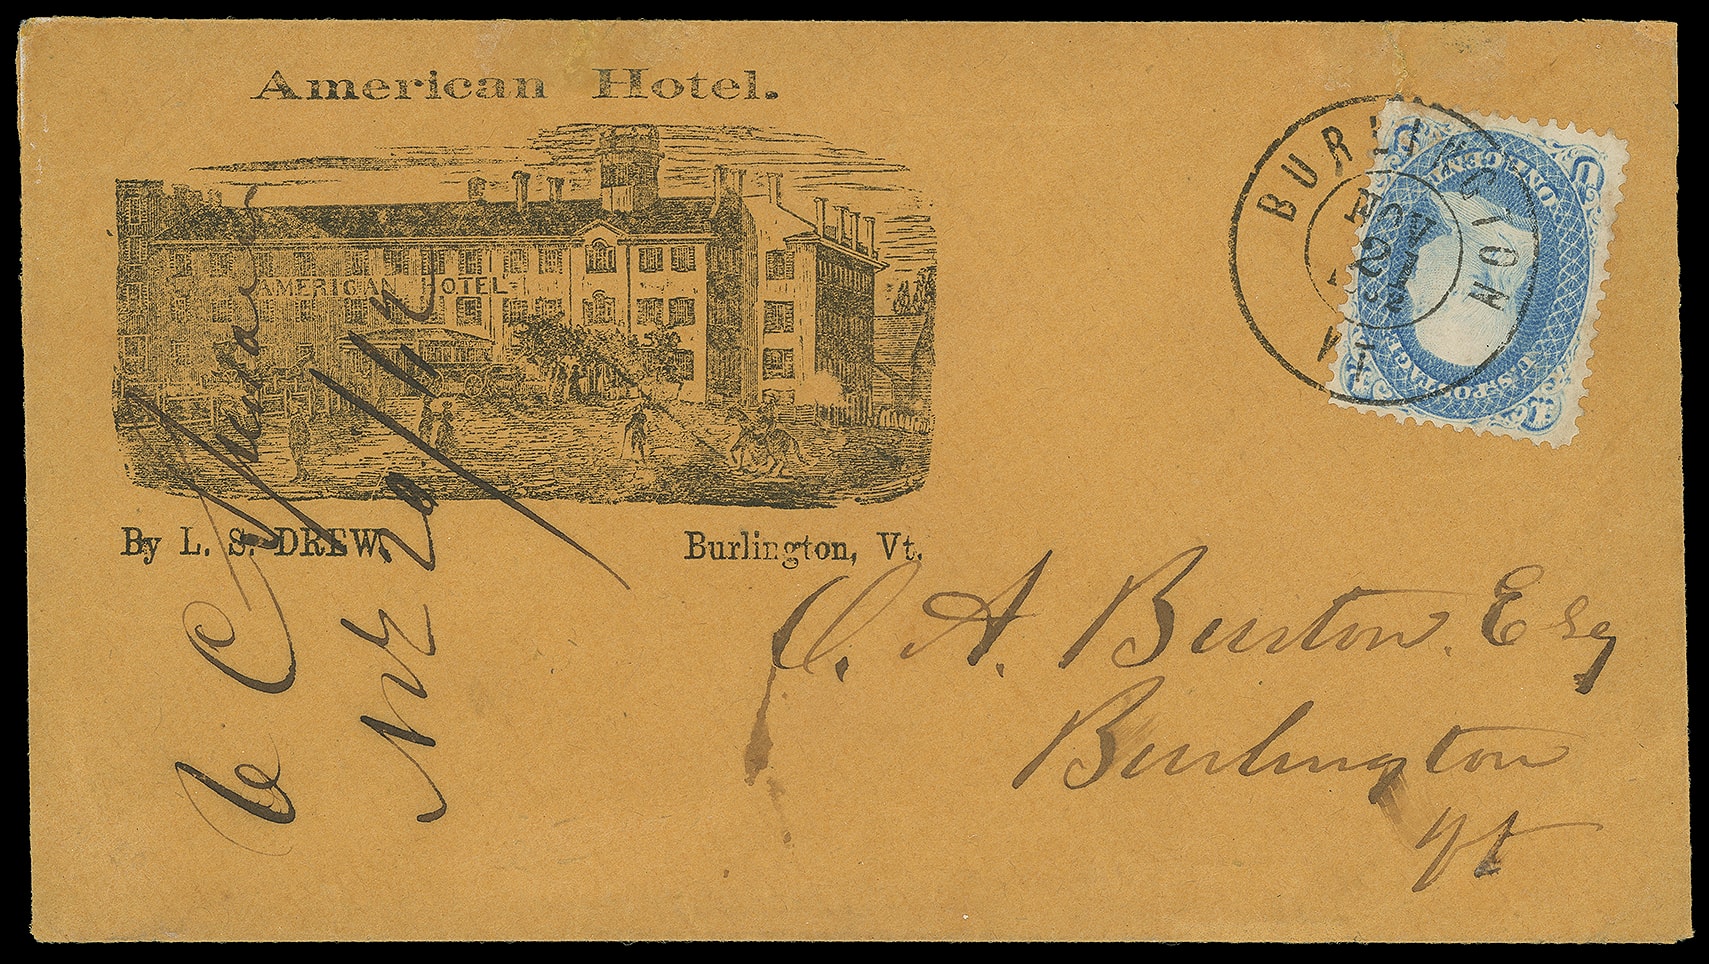 American Hotel.
AMERICAN HOTEL
By L. S. DREW. Burlington, Vt.
BURLINGTON
NOV
Vt
ONE CENT
U.S. POSTAGE
O. A. Burton. Esq
Burlington
Vt